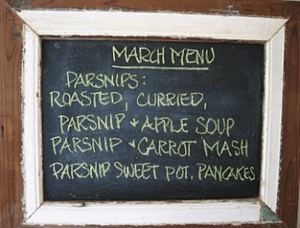 MARCH MENU
PARSNIPS:
ROASTED, CURRIED,
PARSNIP & APPLE SOUP
PARSNIP & CARROT MASH
PARSNIP SWEET POT. PANCAKES